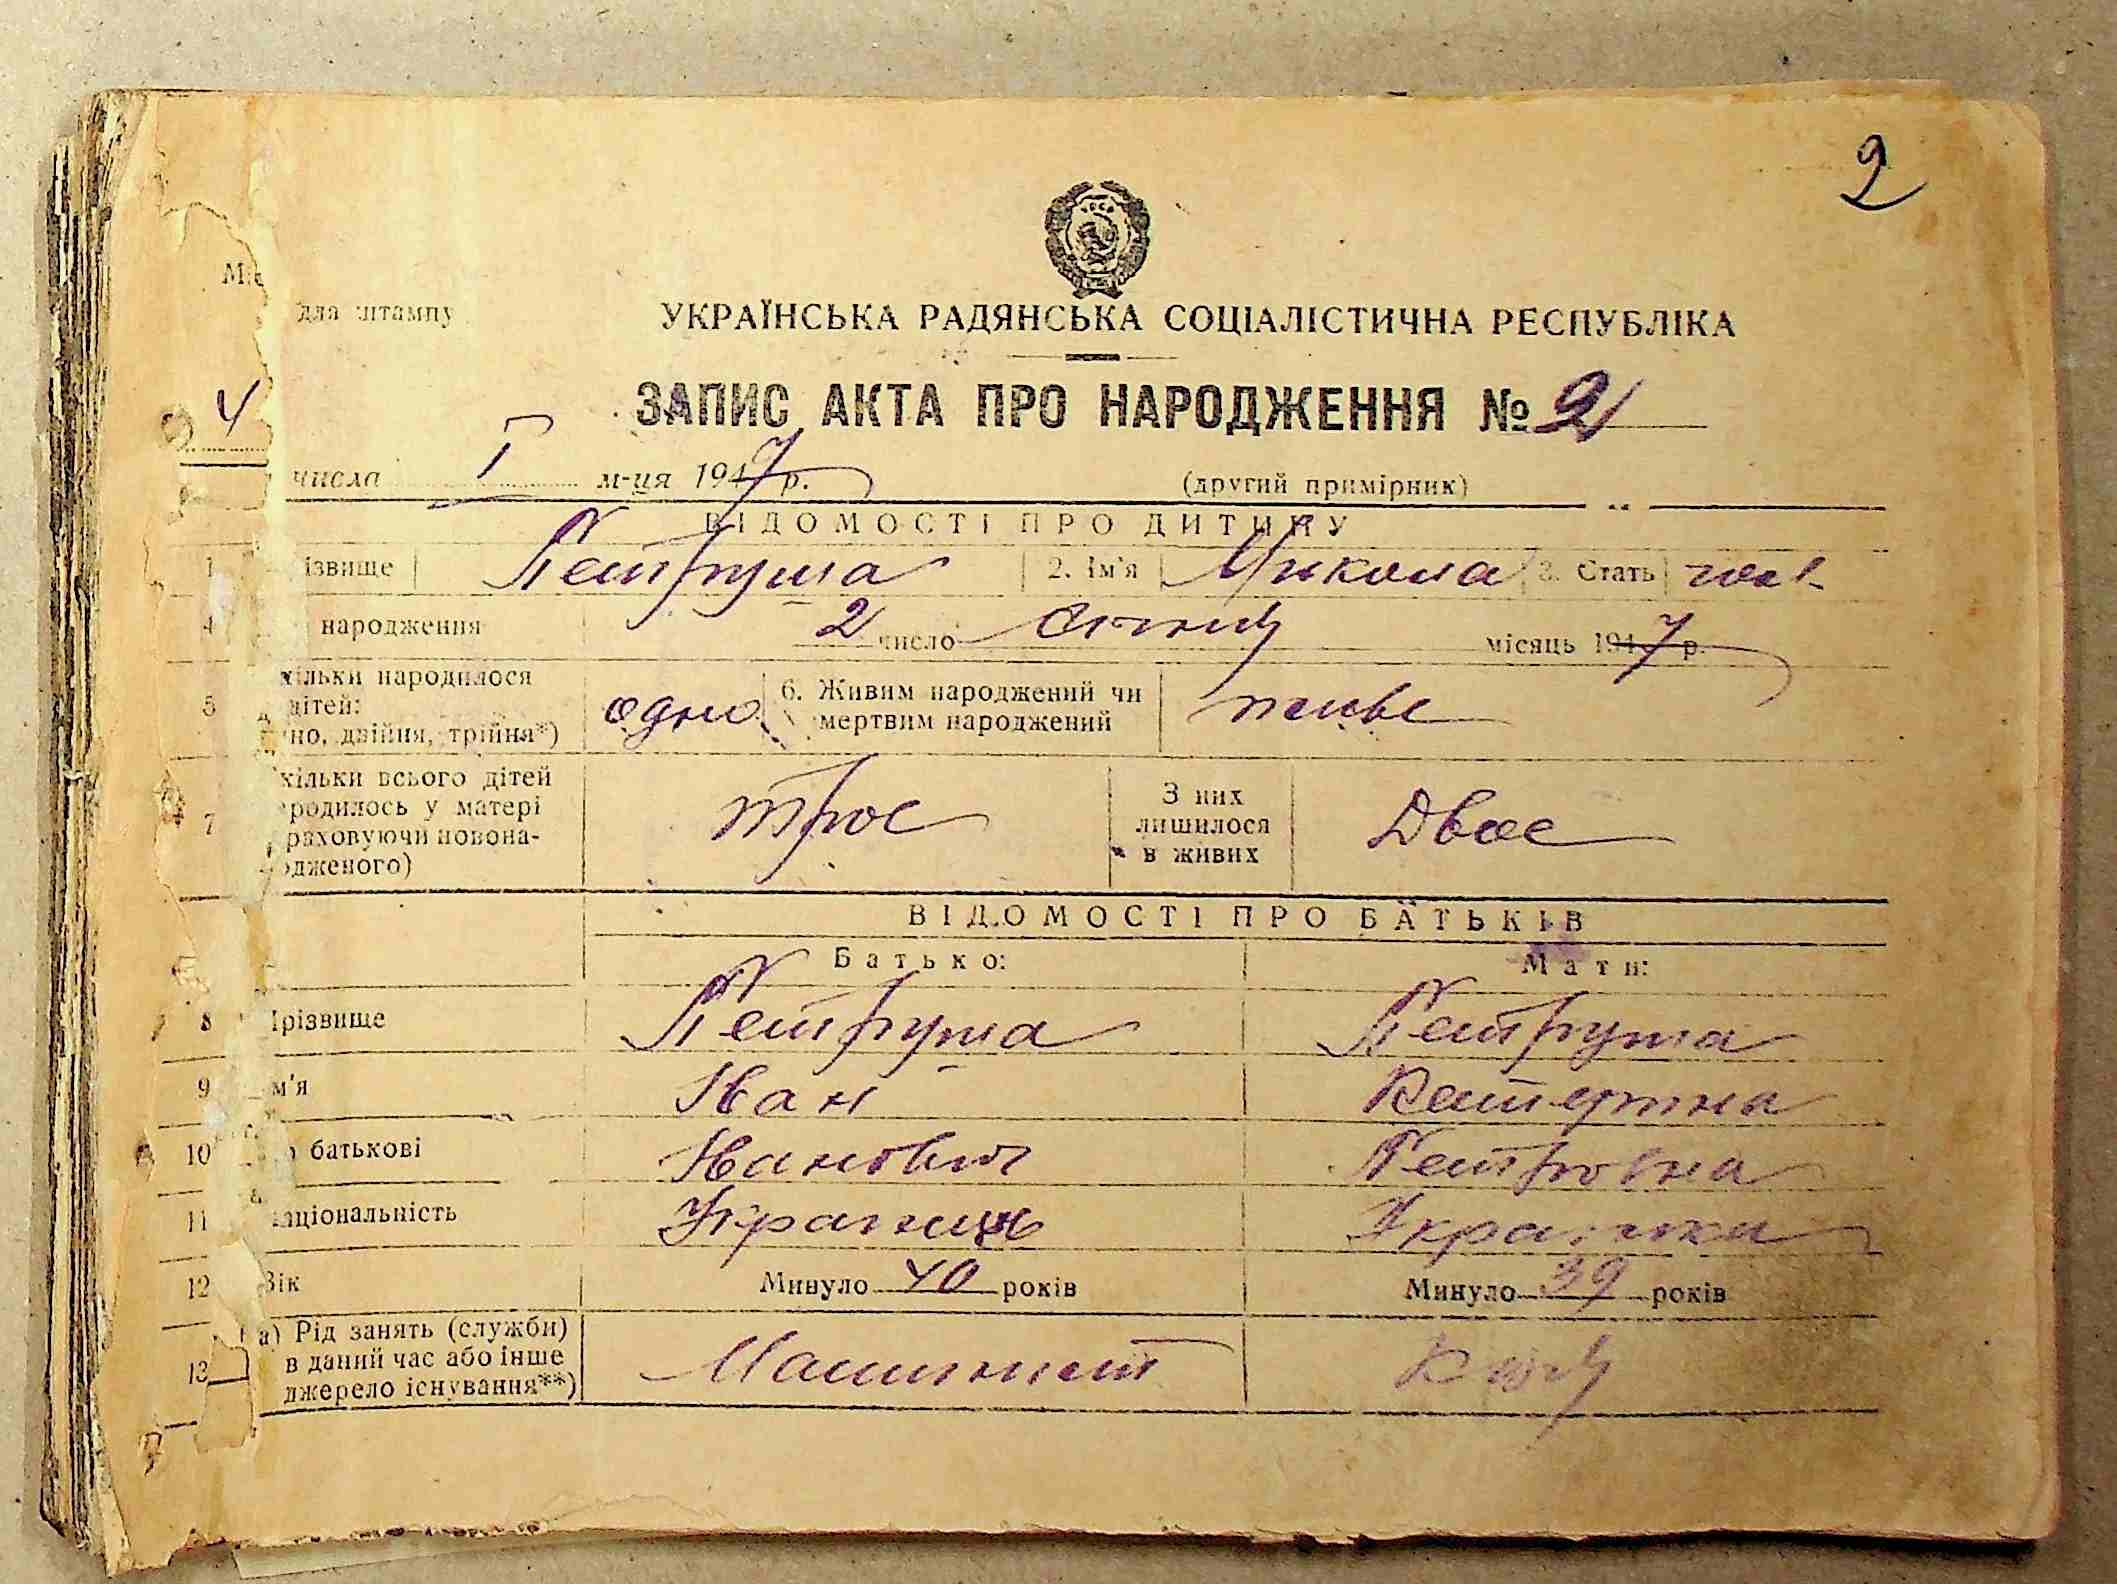 2
для штампу
УКРАЇНСЬКА РАДЯНСЬКА СОЦІАЛІСТИЧНА РЕСПУБЛІКА
ЗАПИС АКТА ПРО НАРОДЖЕННЯ № 2
4 числа I м-ця 1947 р. (другий примірник)
ВІДОМОСТІ ПРО ДИТИНУ
1 ізвище Петруша 2. Ім'я Микола 3. Стать чол.
4 народження 2 число Січня місяць 1947 р.
5 кільки народилося дітей: но, двійня, трійня*) одно 6. Живим народжений чи мертвим народжений живе
7 кільки всього дітей родилось у матері раховуючи новона-дженого) Троє З них лишилося в живих Двоє
ВІДОМОСТІ ПРО БАТЬКІВ
Батько: Мати:
8 різвище Петруша Петруша
9 м'я Іван Катерина
10 батькові Іванович Петровна
11 аціональність Українець Українка
12 Вік Минуло 40 років Минуло 39 років
13 а) Рід занять (служби) в даний час або інше джерело існування**) Машиніст